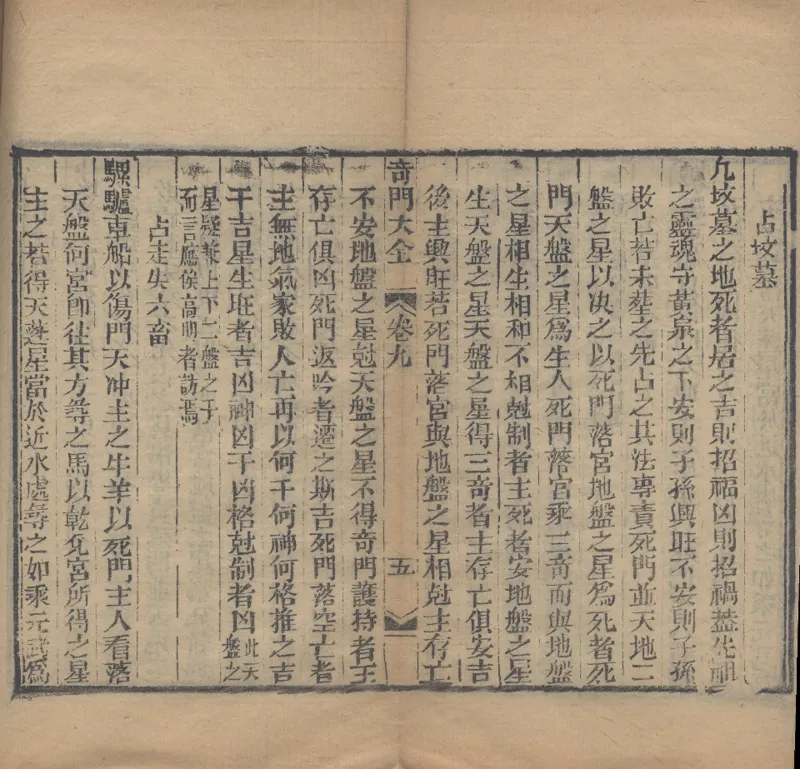 占坟墓
凡坟墓之地死者居之吉則招福凶則招禍葢先祖
之靈魂守黄泉之下安則子孫興旺不安則子孫
敗亡若未塟之先占之其法專責死門並天地二
盤之星以决之以死門落宮地盤之星爲死者死
門天盤之星爲生人死門落宫乘三竒而與地盤
之星相生相和不相尅制者主死者安地盤之星
生天盤之星天盤之星得三竒者主存亡俱安吉
後主興旺若死門落宮與地盤之星相尅主存亡
奇門大全 卷九 五
不安地盤之星尅天盤之星不得奇門護持者主
存亡俱凶死門返吟者遷之斯吉死門落空亡者
主無地氣家敗人亡再以何干何神何格推之吉
干吉星生旺者吉凶神凶干凶格尅制者凶此天盤之
星疑兼上下二盤之干
而言應俟高明者訪焉
占走失六畜
騾驢車船以傷門天冲主之牛羊以死門主人看落
天盤何宮卽往其方尋之馬以乾兊宮所得之星
主之若得天蓬星當於近水處尋之如乘元武爲